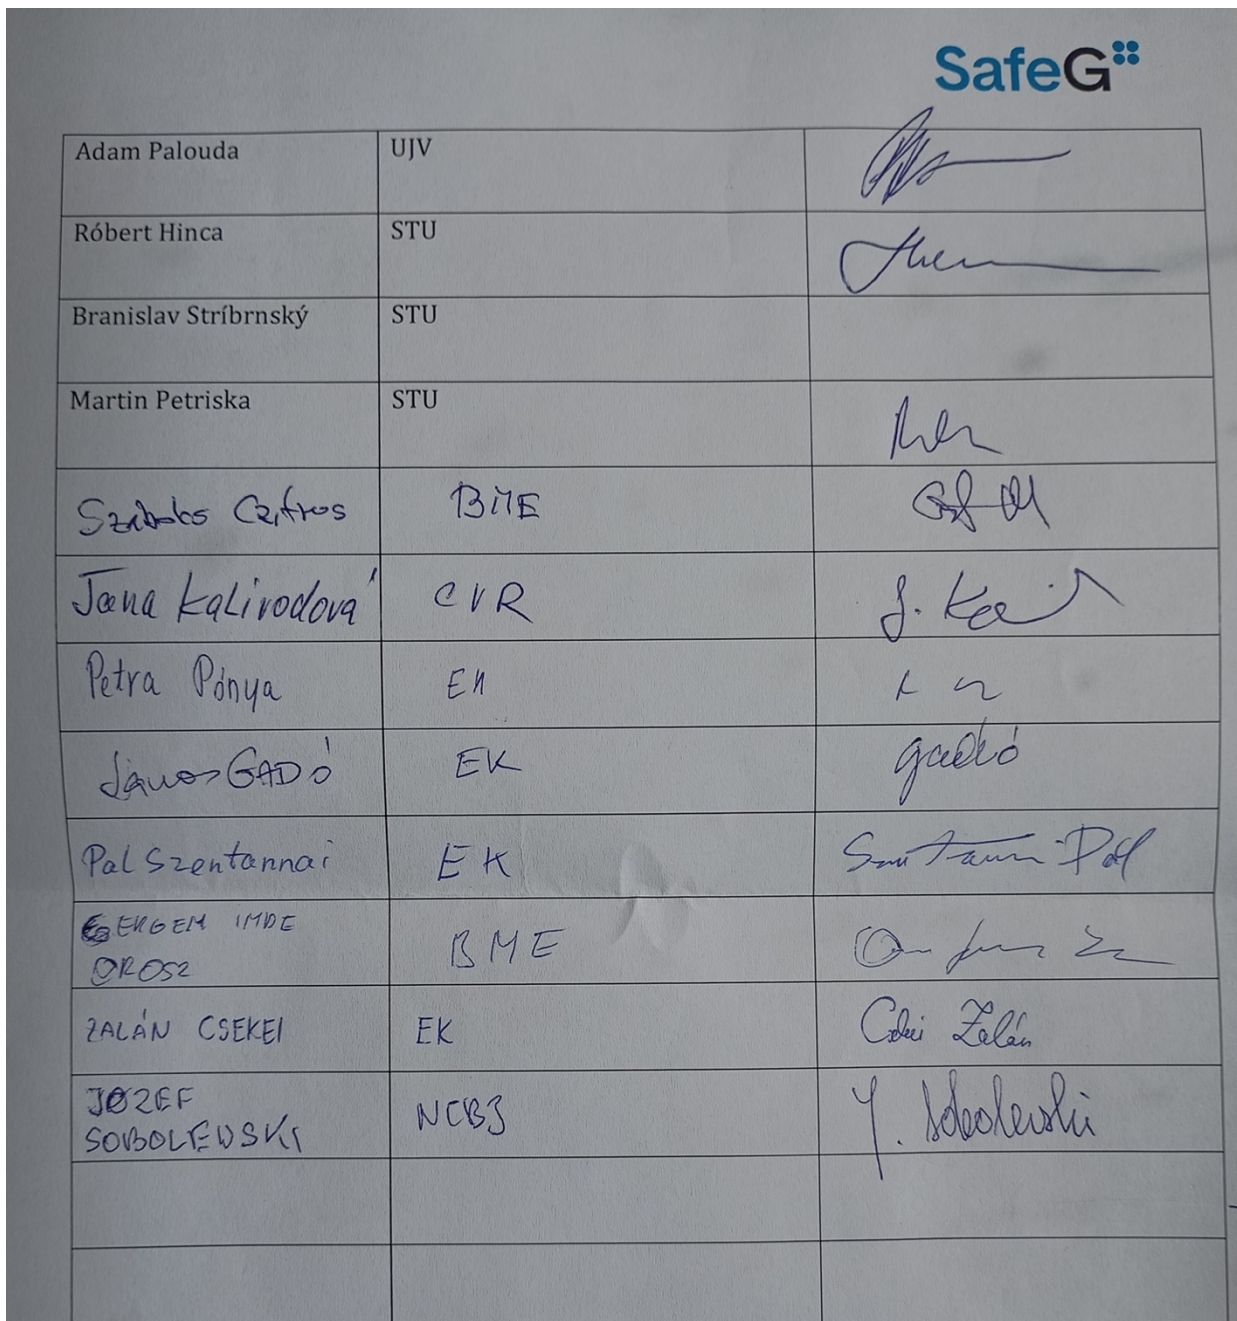 SafeG
Adam Palouda UJV
Róbert Hinca STU
Branislav Stríbrnský STU
Martin Petriska STU
Szabolcs Czifrus BME
Jana Kalivodová CVR
Petra Pónya EK
János GADÓ EK
gadó
Pal Szentannai EK
Pál
GERGELY IMRE BME
OROSZ
ZALÁN CSEKEI EK
Zalán
JÓZEF NCBJ
SOBOLEWSKI
J. Sobolewski